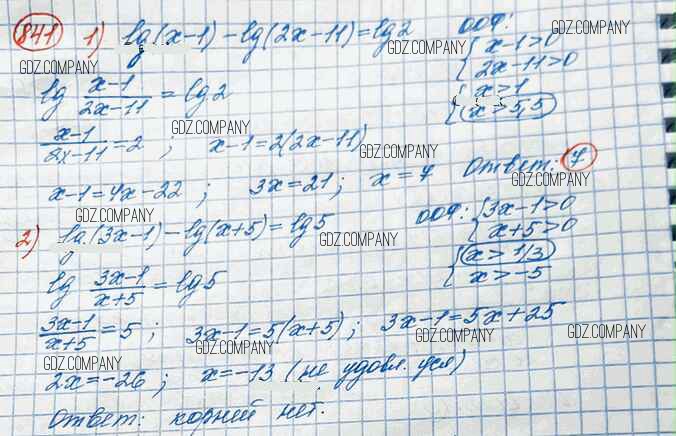 841 1) lg(x-1)-lg(2x-11)=lg2
ООФ: { x-1>0
GDZ.COMPANY
GDZ.COMPANY
GDZ.COMPANY
{ 2x-11>0
lg x-1/2x-11 = lg2
{ x>1
GDZ.COMPANY
x>5,5
x-1/2x-11=2 ; x-1=2(2x-11)
GDZ.COMPANY
GDZ.COMPANY
x-1=4x-22 ; 3x=21 ; x=7 Ответ: 7
GDZ.COMPANY
GDZ.COMPANY
2) lg(3x-1)-lg(x+5)=lg5
ООФ: { 3x-1>0
x+5>0
GDZ.COMPANY
GDZ.COMPANY
{ x>1/3
x>-5
lg 3x-1/x+5 = lg5
3x-1/x+5=5 ; 3x-1=5(x+5) ; 3x-1=5x+25
GDZ.COMPANY
GDZ.COMPANY
GDZ.COMPANY
GDZ.COMPANY
2x=-26 ; x=-13 (не удовл. усл)
Ответ: корней нет.